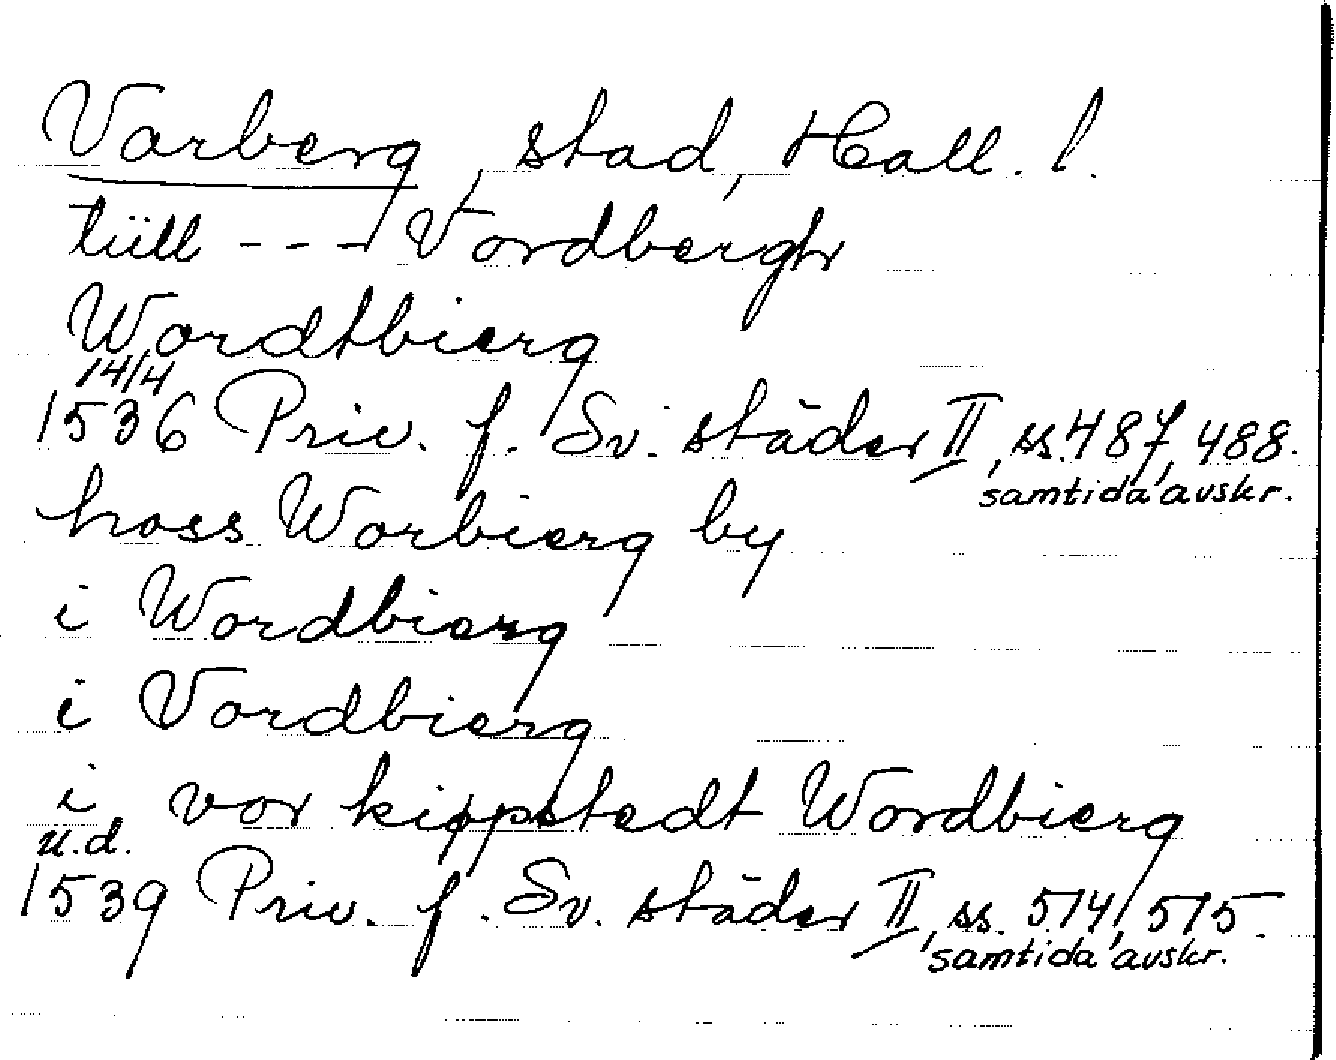 Varberg, stad, Hall. l.
tiill - - - Vordbergh
Wordtbierg
14/4
1536 Priv. f. Sv. städer II, ss. 487, 488.
samtida avskr.
hoss Worbierg by
i Wordbierg
i Vordbierg
i vor kippstedt Wordbierg
u.d.
1539 Priv. f. Sv. städer II, ss. 514, 515.
samtida avskr.